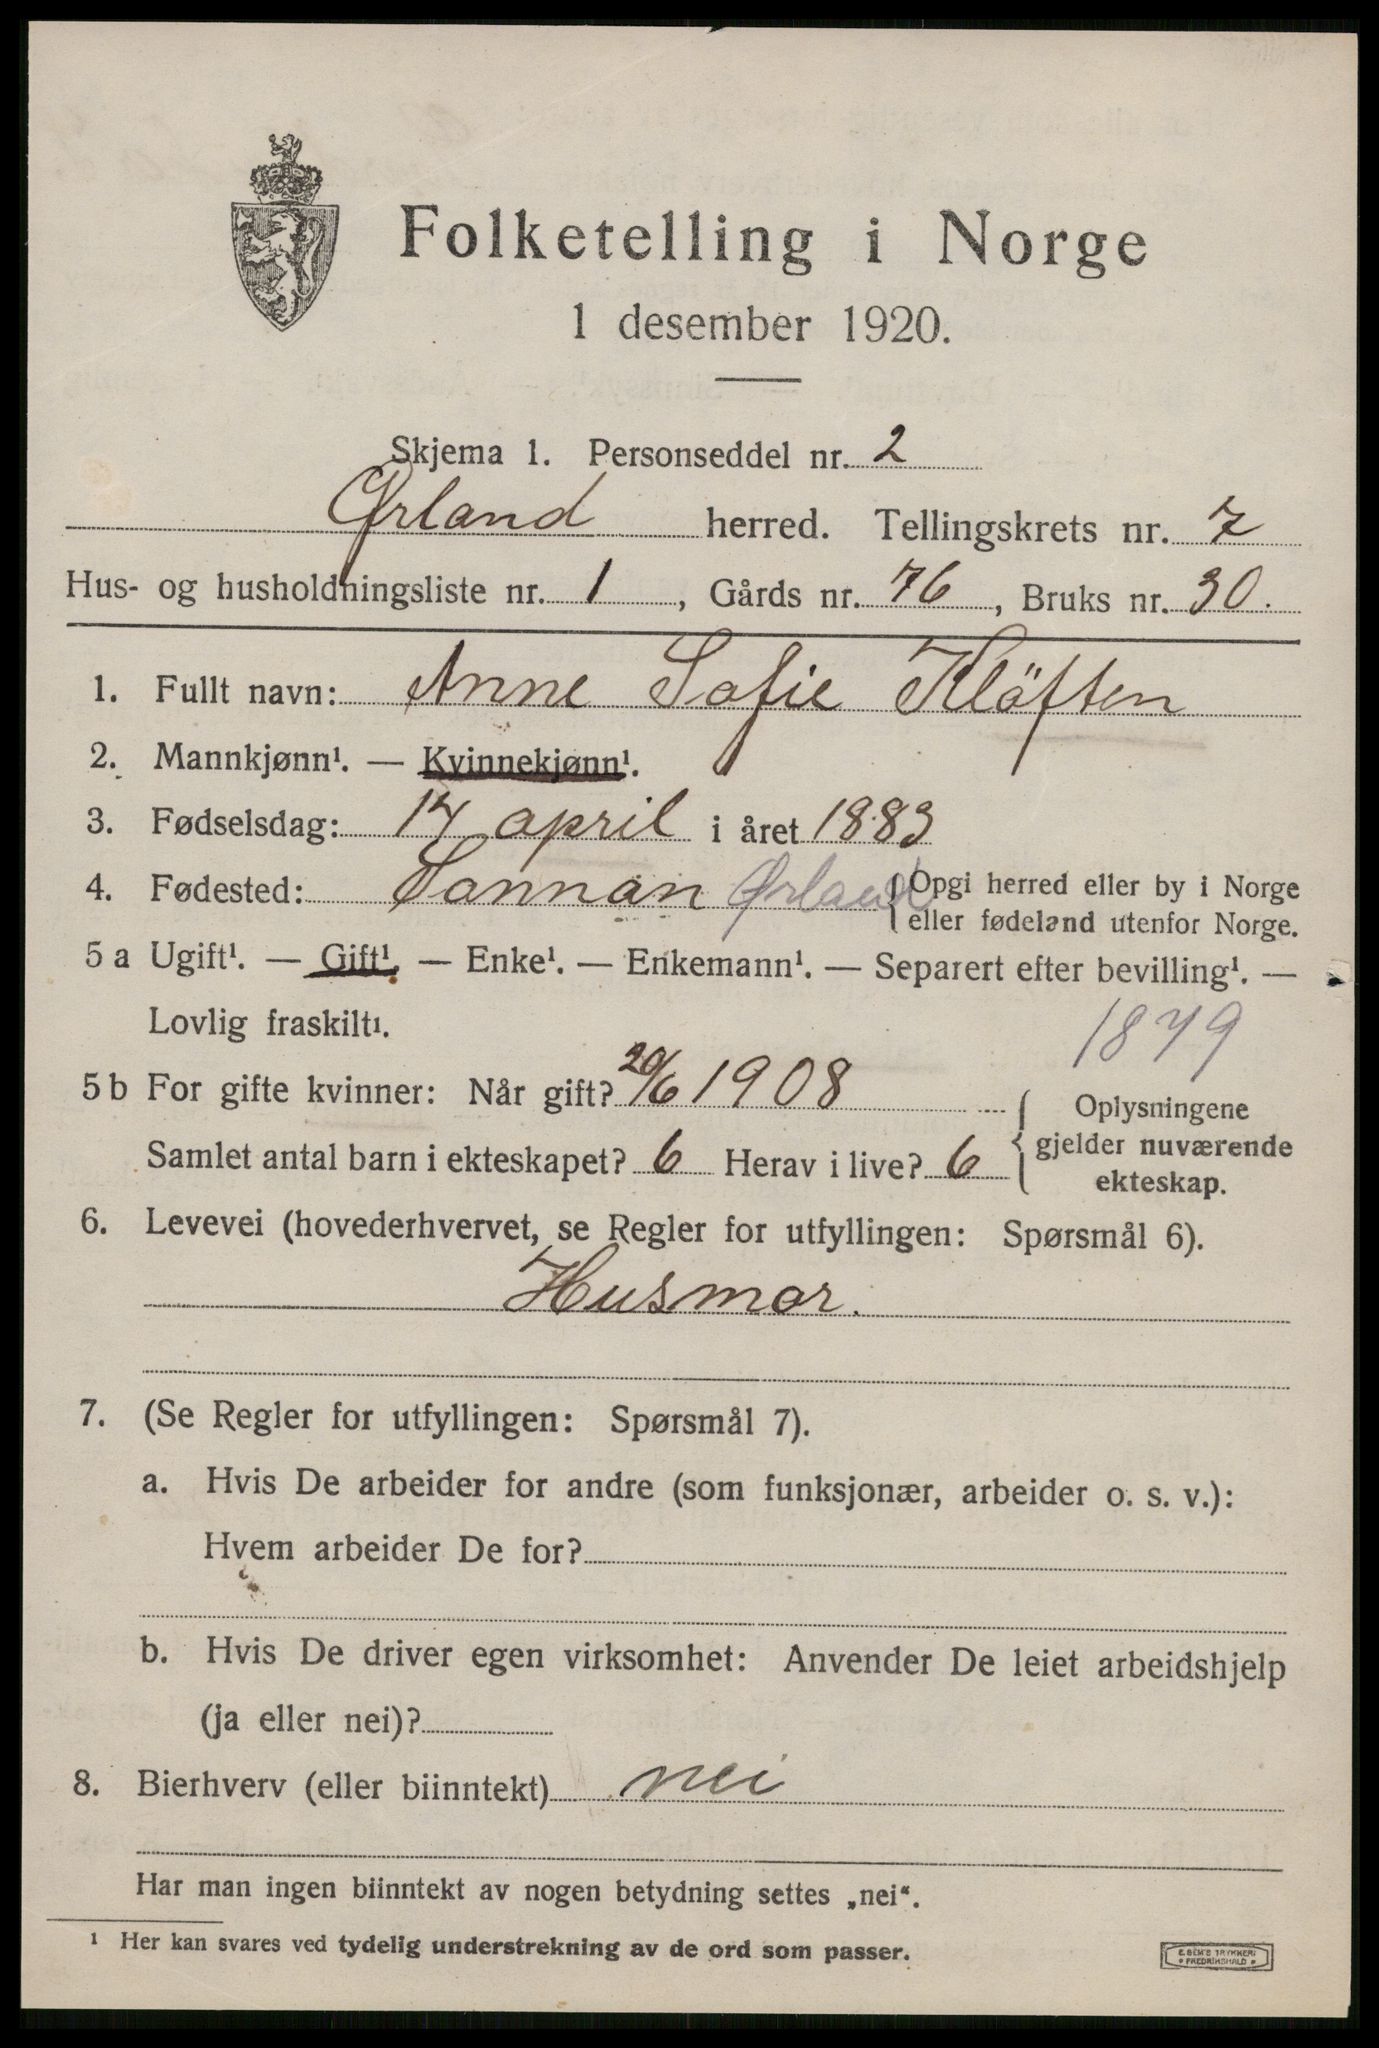 Folketelling i Norge
1 desember 1920.
Skjema 1. Personseddel nr. 2
Ørland herred. Tellingskrets nr. 7
Hus- og husholdningsliste nr. 1, Gårds nr. 76, Bruks nr. 30.
1. Fullt navn: Anne Sofie Kløften
2. Mannkjønn¹. — Kvinnekjønn¹.
3. Fødselsdag: 14 april i året 1883
4. Fødested: Sannan Ørland { Opgi herred eller by i Norge
eller fødeland utenfor Norge.
5 a Ugift¹. — Gift¹. — Enke¹. — Enkemann¹. — Separert efter bevilling¹. —
Lovlig fraskilt¹.
1879
5 b For gifte kvinner: Når gift? 20/6 1908
Samlet antal barn i ekteskapet? 6 Herav i live? 6
{ Oplysningene
gjelder nuværende
ekteskap.
6. Levevei (hovederhvervet, se Regler for utfyllingen: Spørsmål 6).
Husmor.
7. (Se Regler for utfyllingen: Spørsmål 7).
a. Hvis De arbeider for andre (som funksjonær, arbeider o. s. v.):
Hvem arbeider De for?
b. Hvis De driver egen virksomhet: Anvender De leiet arbeidshjelp
(ja eller nei)?
8. Bierhverv (eller biinntekt) nei
Har man ingen biinntekt av nogen betydning settes „nei“.
¹ Her kan svares ved tydelig understrekning av de ord som passer.
E. SEM'S TRYKKERI
* FREDRIKSHALD *